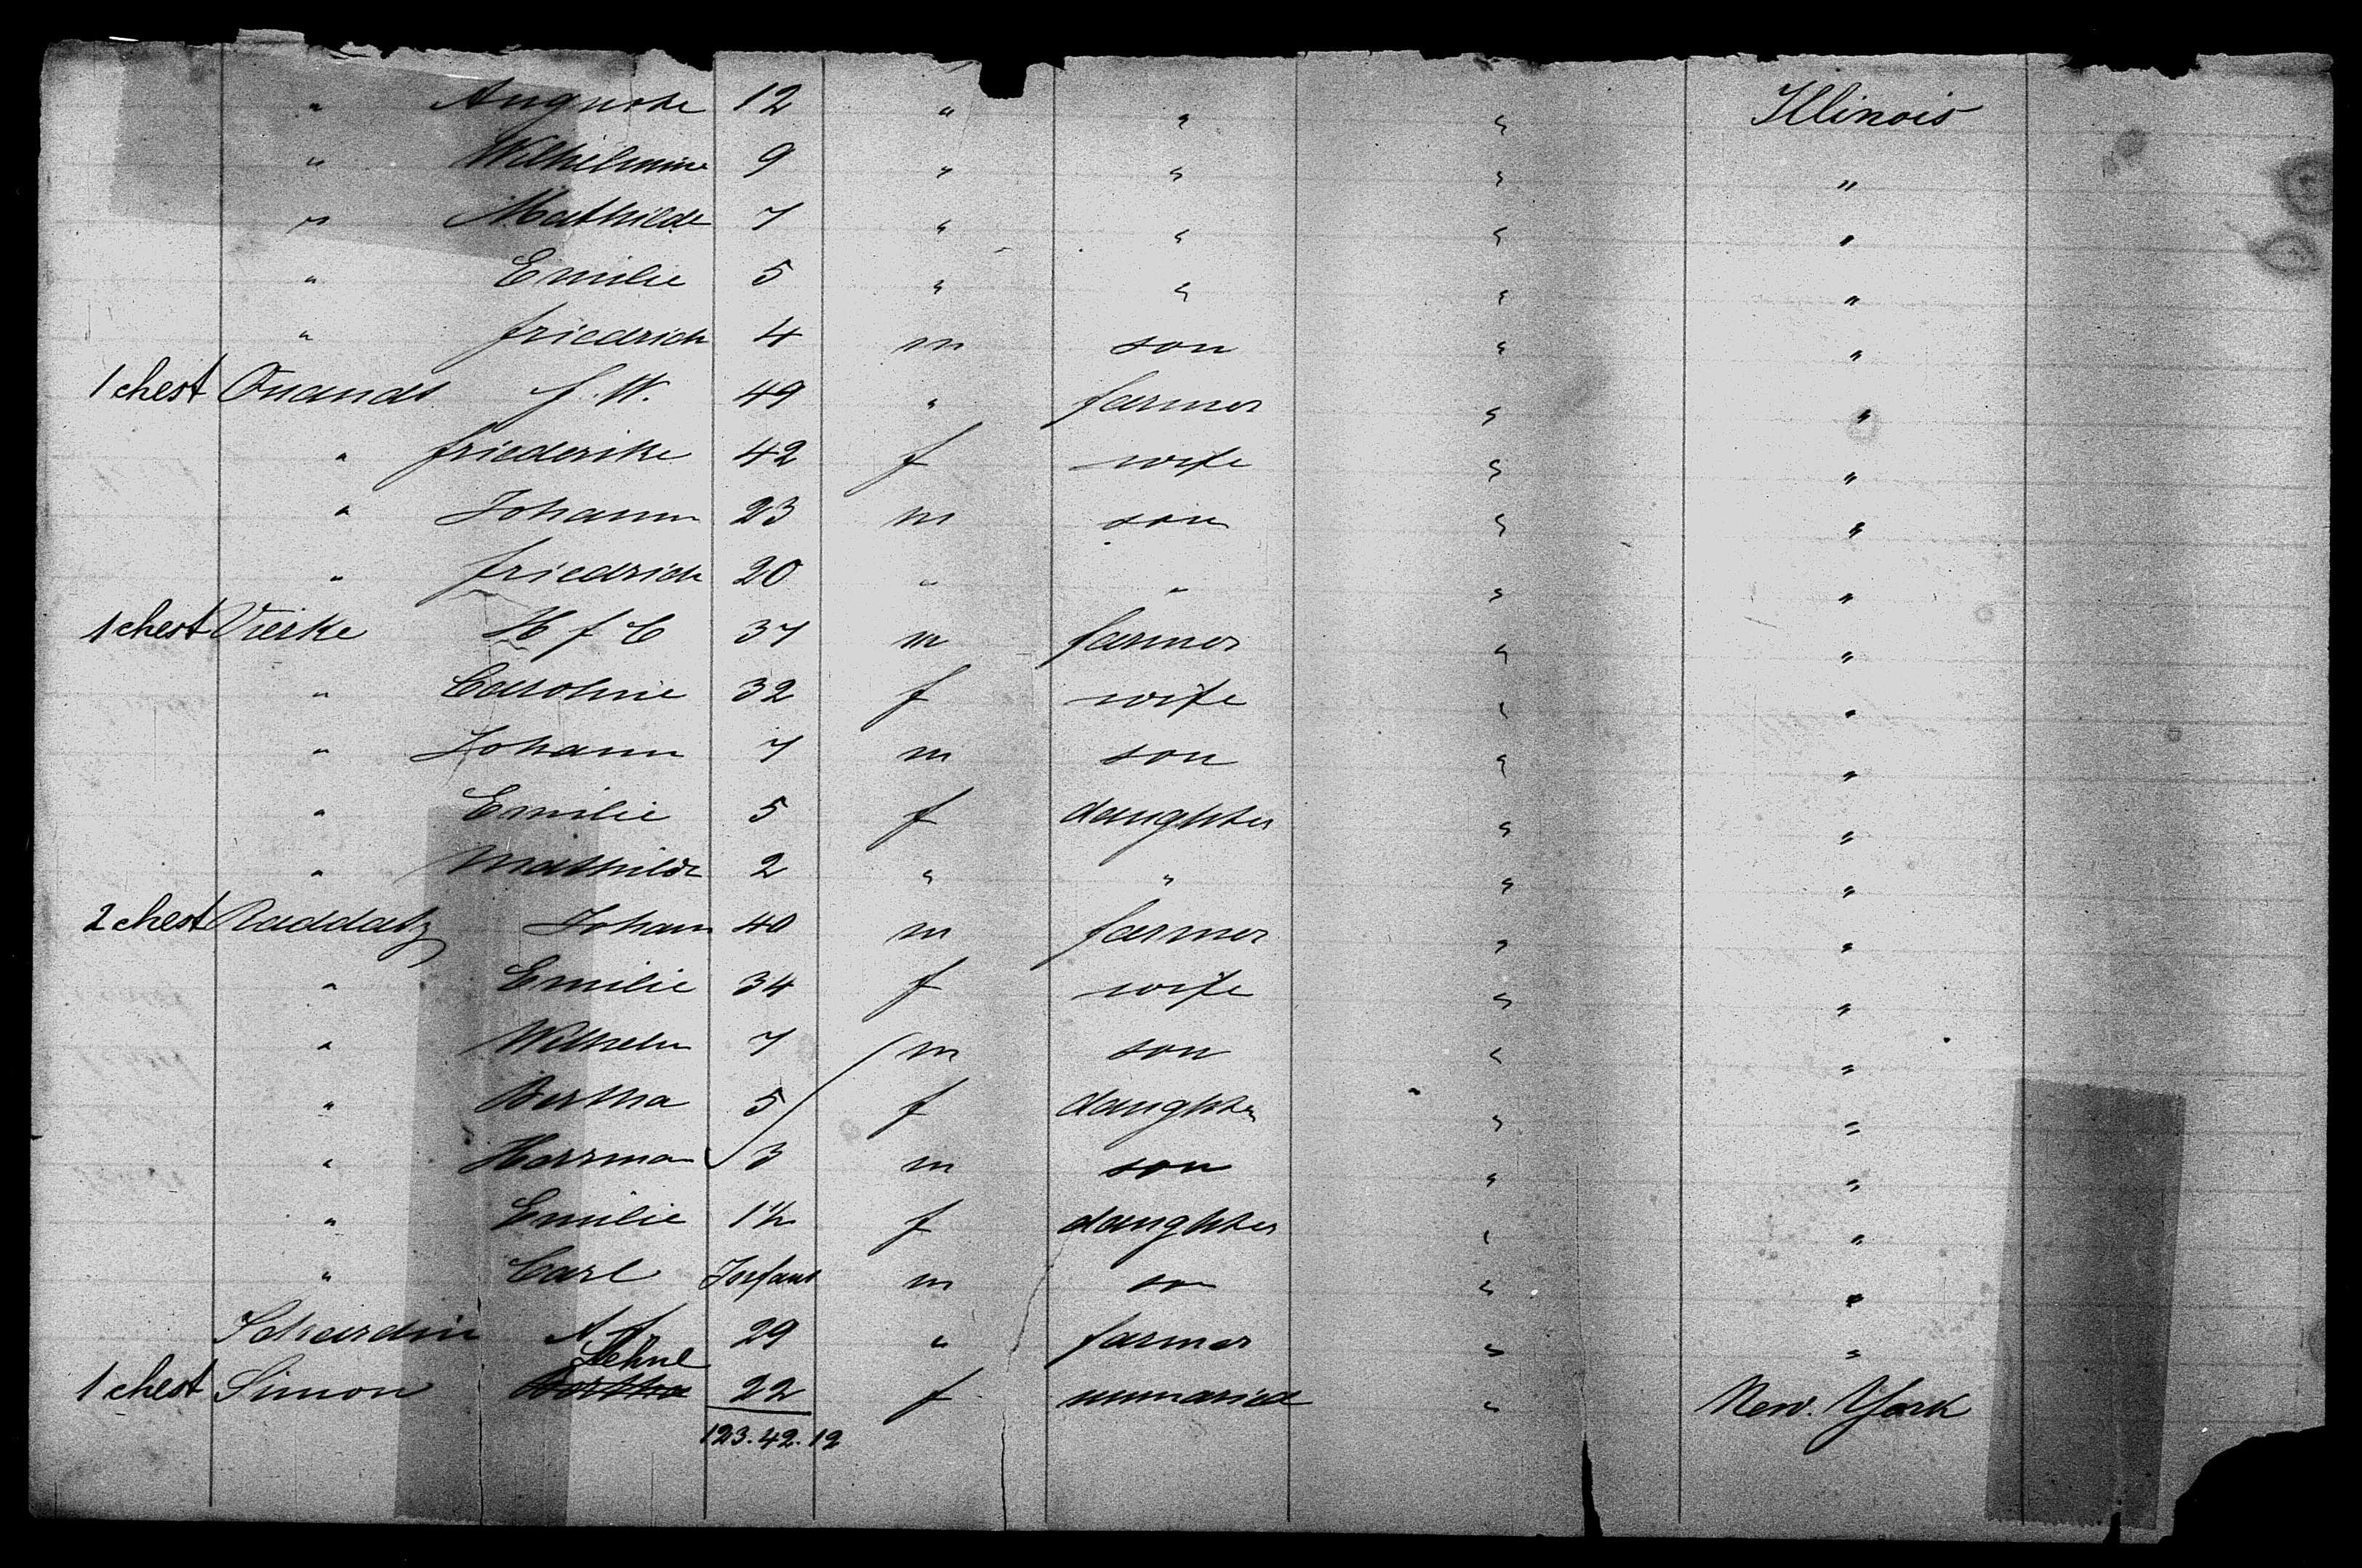 " Auguste 12 " " " Illinois
" Wilhelmine 9 " " " "
" Mathilde 7 " " " "
" Emilie 5 " " " "
" Friedrich 4 m son " "
1 chest Quandt F. W. 49 " farmer " "
" Friederike 42 f wife " "
" Johann 23 m son " "
" Friedrich 20 " " " "
1 chest Vierke H F C 37 m farmer " "
" Caroline 32 f wife " "
" Johann 7 m son " "
" Emilie 5 f daughter " "
" Mathilde 2 " " " "
2 chest Raddatz Johann 40 m farmer " "
" Emilie 34 f wife " "
" Wilhelm 7 m son " "
" Bertha 5 f daughter " "
" Herrman 3 m son " "
" Emilie 1½ f daughter " "
" Carl Infant m son " "
Schardin 29 " farmer " "
1 chest Simon Bertha 22 f unmaried " New. York
123. 42. 12